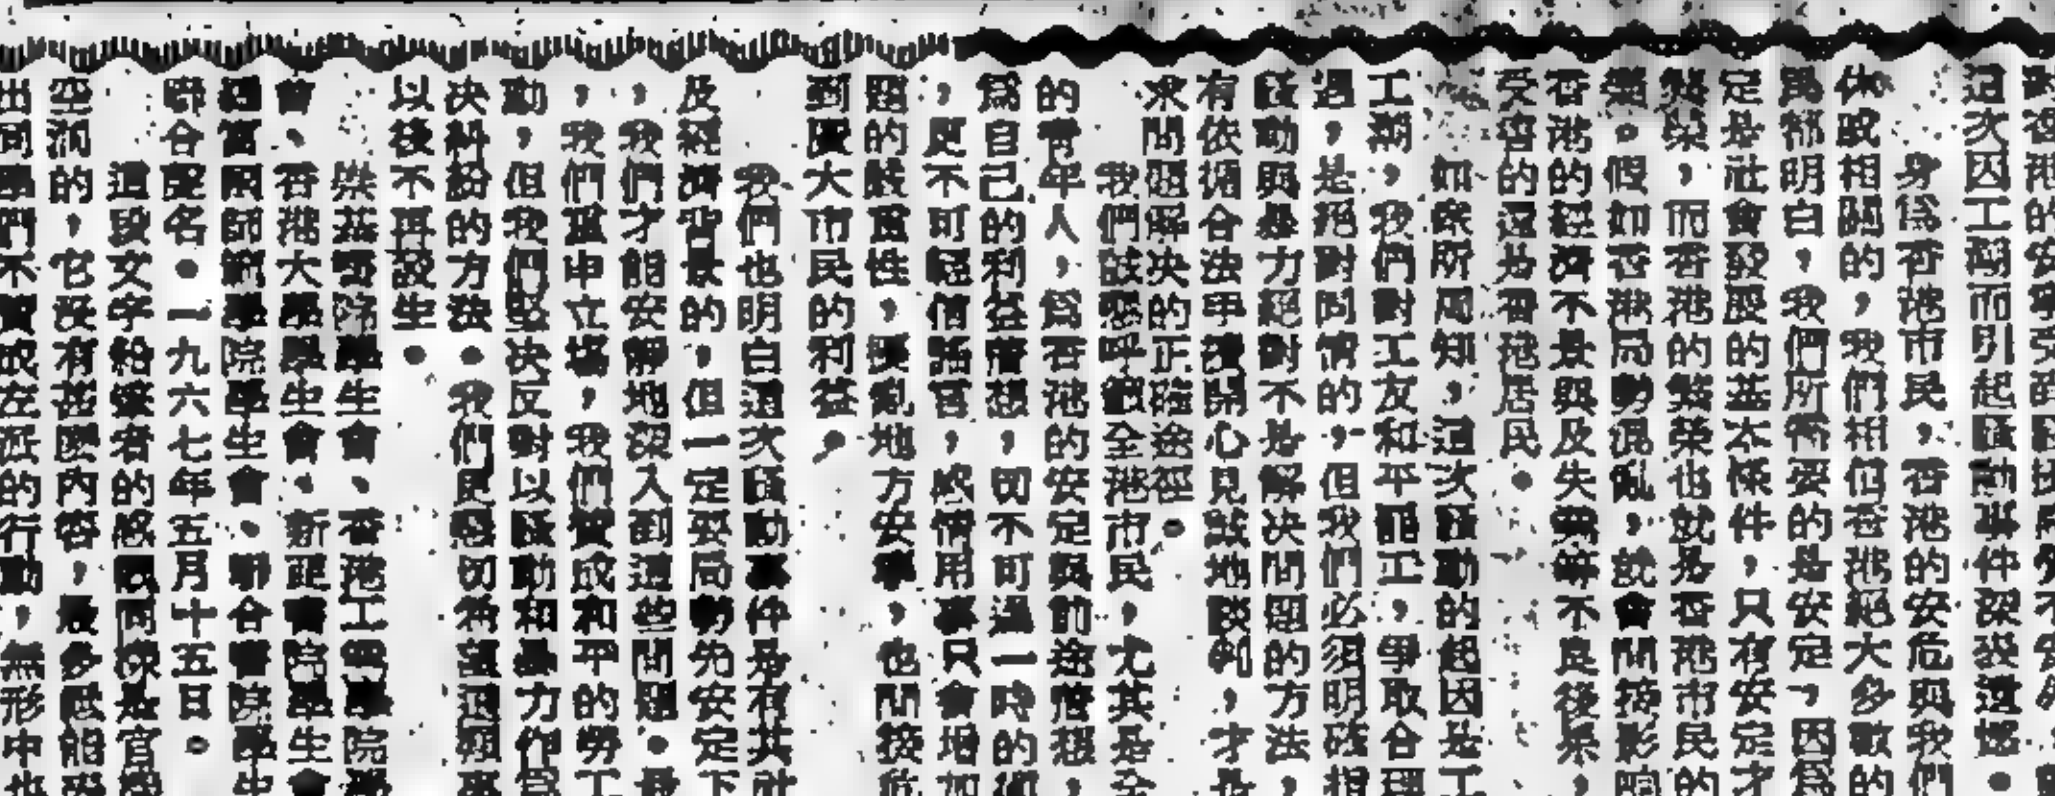 對香港的安寧引起騷
這次因工潮而引起騷動事件深發遺憾。
身為香港市民，香港的安危與我們
休戚相關的，我們相信香港絕大多數的
為簡明白，我們所需要的是安定，因為
定是社會發展的基本條件，只有安定才
繁榮，而香港的繁榮也就是香港市民的
樂。假如香港局勢混亂，就會間接影响
香港的經濟不景與及失業等不良後果，
受害的還是香港居民。
如眾所周知，這次騷動的起因是工
工潮，我們對工友和平罷工，爭取合理
遇，是絕對同情的，但我們必須明確指
騷動與暴力絕對不是解決問題的方法，
有依循合法爭護開心見誠地談判，才是
求問題解決的正確途徑。
我們誠懇呼籲全港市民，尤其是全
的青年人，為香港的安定與前途着想，
為自己的利益着想，切不可逞一時的
，更不可輕信謠言，感情用事只會增加
題的嚴重性，擾亂地方安寧，也間接危
到廣大市民的利益，
我們也明白這次騷動事件是有其社
及經濟背景的，但一定要局勢先安定下
，我們才能安靜地深入到這些問題。最
，我們重申立場，我們贊成和平的勞工
動，但我們堅決反對以騷動和暴力作為
決糾紛的方法。我們更懇切希望這類事
以後不再發生。
崇基學院學生會、香港工專學院學
會、香港大學學生會、新亞書院學生會
羅富國師範學院學生會、聯合書院學生
聯合署名。一九六七年五月十五日。
這段文字給讀者的感覺同樣是官樣
空洞的，它沒有甚麼內容，最多只能
出同學們不贊成左派的行動，無形中也